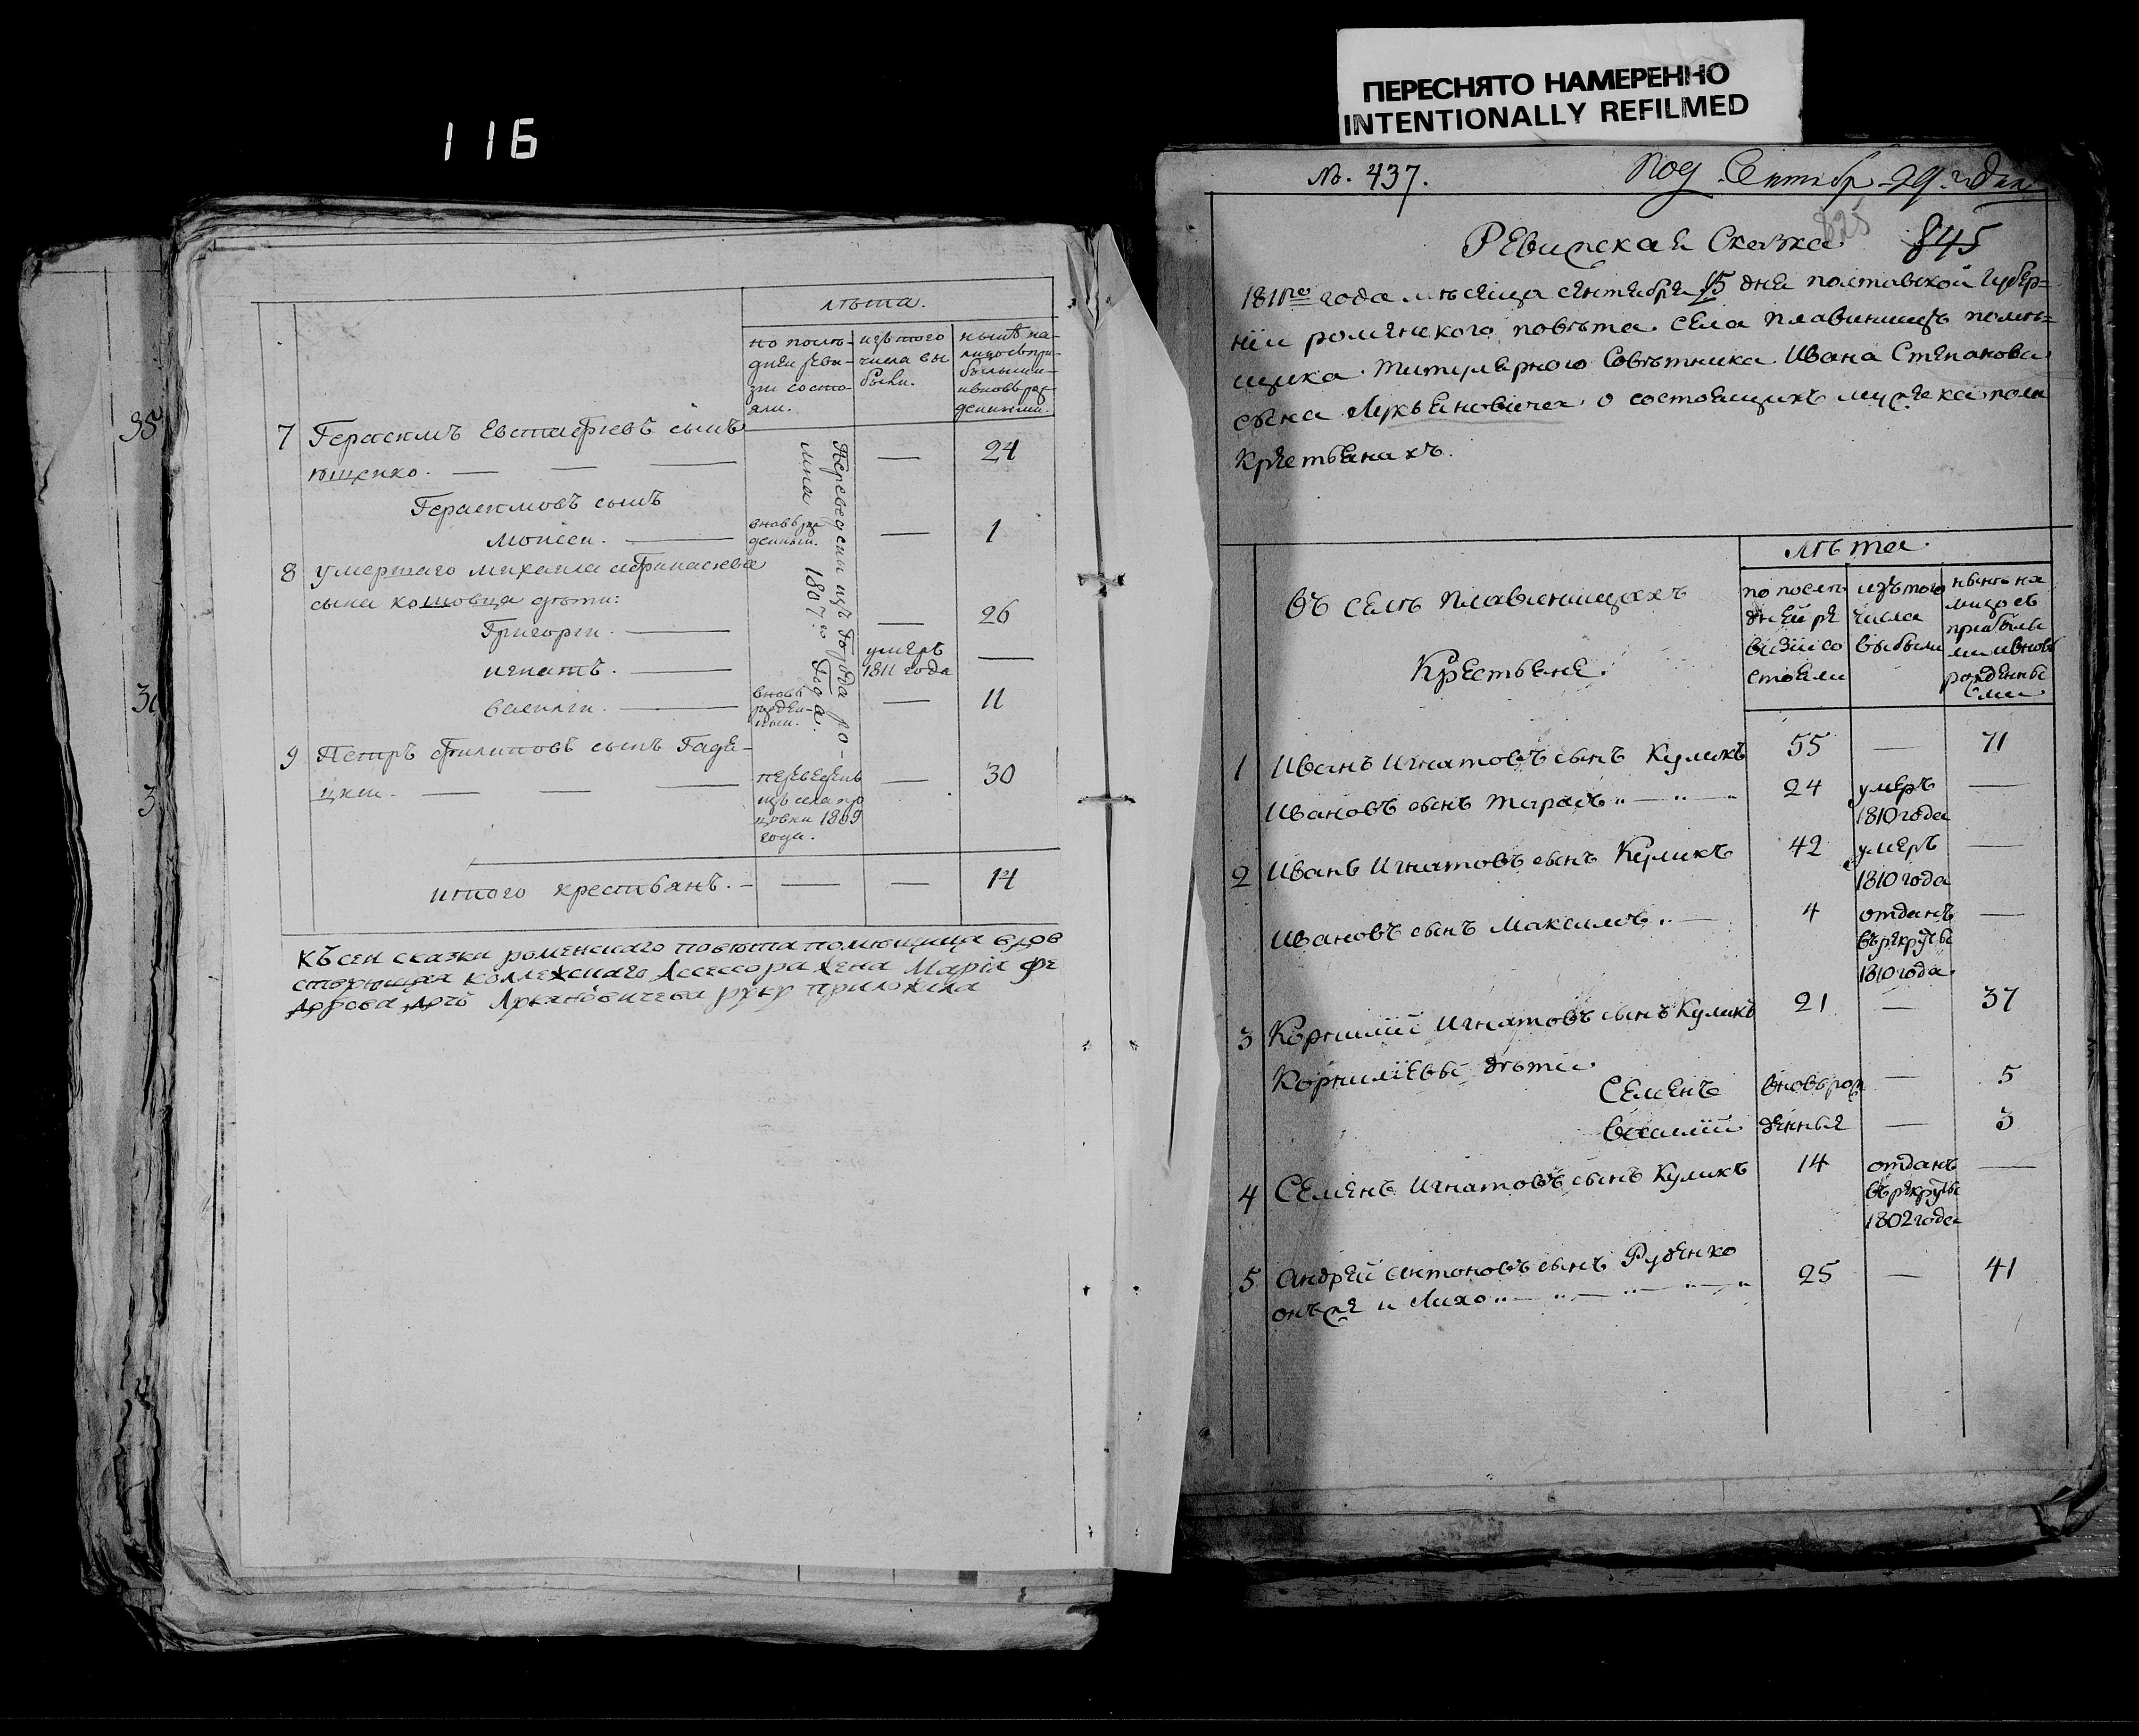 116
ПЕРЕСНЯТО НАМЕРЕННО
INTENTIONALLY REFILMED
35
3
лѣта.
по послѣ-
дней реви-
зіи состо
яли.
изъ того
числа вы
были.
нынѣ на-
лицо съ при-
былыми
и вновь рож
денными.
7 Герасимъ Евстафіевъ сынъ
ющенко. — — — — 24
Герасимовъ сынъ
Моисеи. — вновь рож
денныи. — 1
8 умершаго михаила афанасіева
сына кошовца дѣти:
Григореи. — — 26
игнатъ. — умеръ
1811 года —
василеи. — вновь
рожден-
ныи. — 11
Переведены изъ города ро-
мна 1807го года.
9 Петръ филиповъ сынъ Гаде-
цкеи. — — — переведенъ
изъ села про
цовки 1809
года. — 30
итого крестьянъ. — — — 14
Къ сеи сказки роменскаго повѣта помѣщица вдов
ствующая коллежскаго Ассессора жена Марія Фе
дорова дочь Лукяновичева руку приложила
№. 437.
Сентябр 29. дня
825
845
Ревизская Сказка
1811го года мѣсяца сентября 15 дня полтавской губер=
ніи роменского повѣта села плавинищъ помѣ=
щика титулярного Совѣтника Ивана Степанова
сына Лукьяновича о состоящихъ мужеска пола
крестьянахъ.
въ селѣ плавинищахъ
Крестьяне.
лѣта.
по послѣ
дней ре
визіи со
стояли
изъ того
числа
выбыли
нынѣ на
лицо съ
прибылы
ми и вновь
рожденны
ми
1 Иванъ Игнатовъ сынъ Куликъ 55 — 71
Ивановъ сынъ тарасъ „ — „ — 24 умеръ
1810 года —
2 Иванъ Игнатовъ сынъ Куликъ 42 умеръ
1810 года —
Ивановъ сынъ Максимъ „ — 4 отданъ
въ рекруты
1810 года —
3 Корнилій Игнатовъ сынъ Куликъ 21 — 37
Корниліевы дѣти
Семенъ вновь рож — 5
василій денные — 3
4 Семенъ Игнатовъ сынъ Куликъ 14 отданъ
въ рекруты
1802 года —
5 андрей антоновъ сынъ Руденко
онъ же и Лихо „ — „ — „ — „ — „ 25 — 41